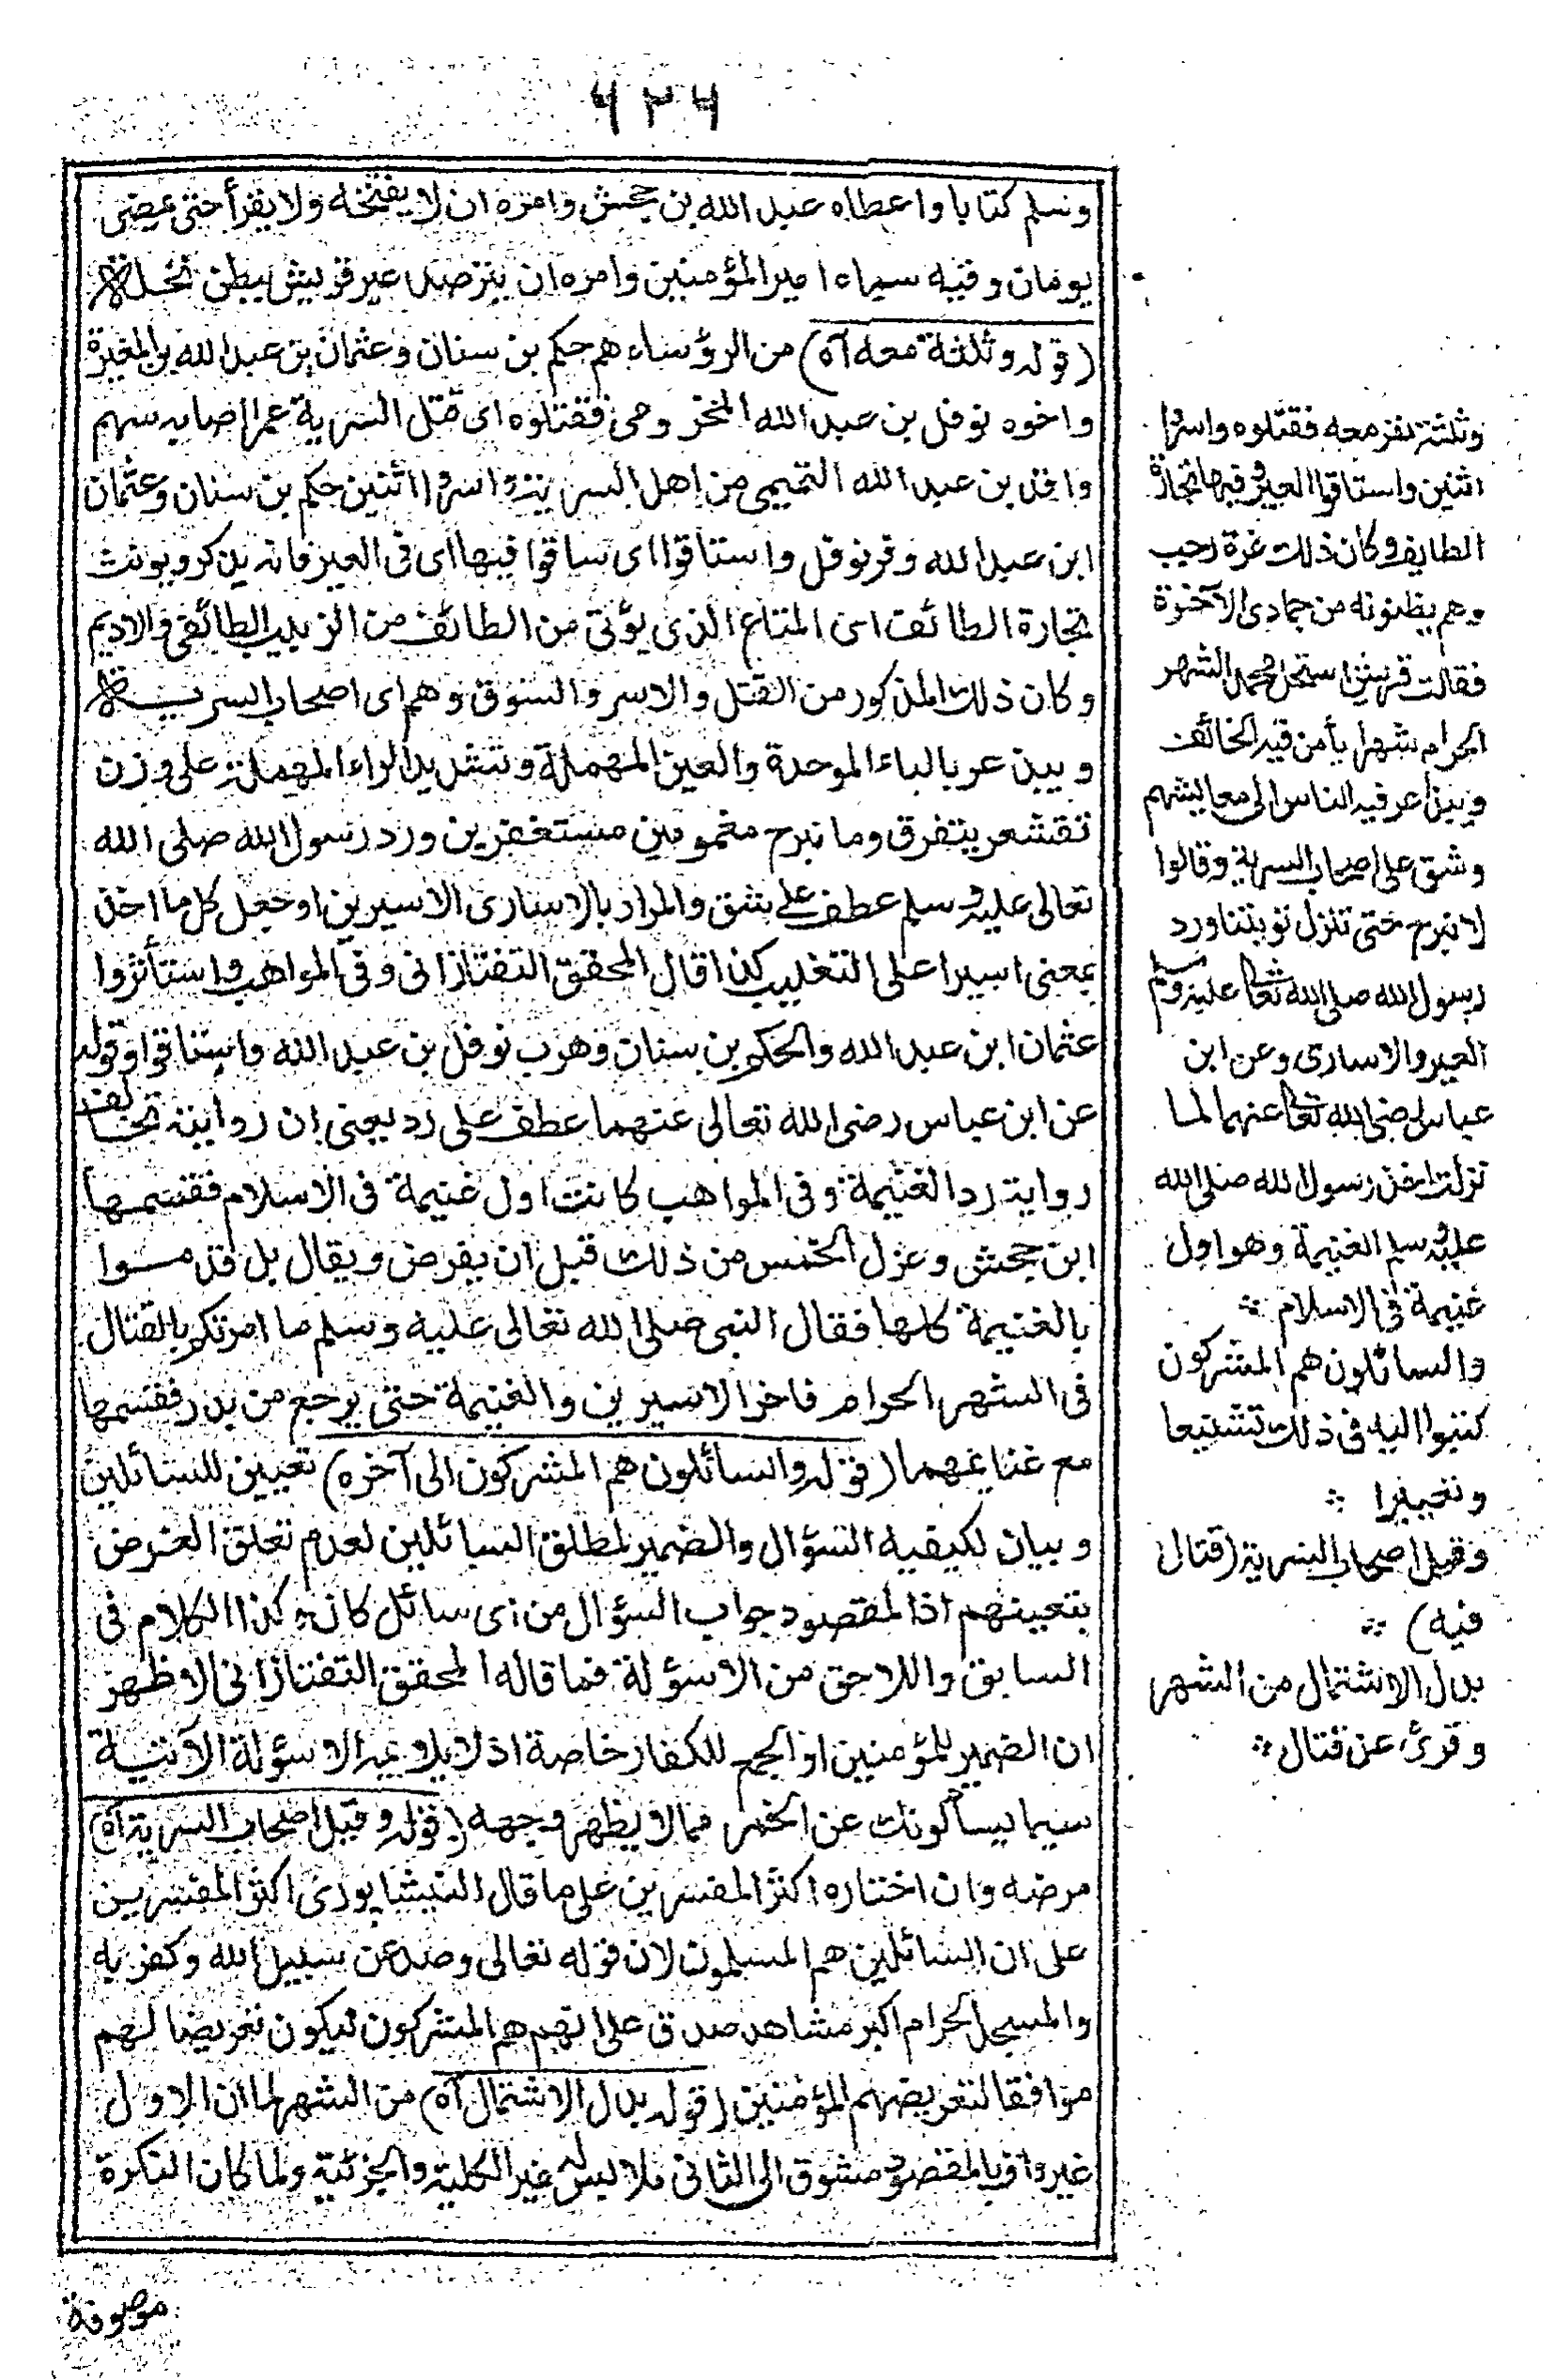 ٤٢٤
وسلم كتابا واعطاه عبد الله بن جحش وامره ان لا يفتحه ولا يقرأ حتى يمضى
يومان وفيه سماه امير المؤمنين وامره ان يترصد عير قريش ببطن نخلة
(قوله وثلثة معه آه) من الرؤساء هم حكم بن سنان وعثمان بن عبد الله بن المغيرة
واخوه نوفل بن عبد الله المخزومى فقتلوه اى قتل السرية عمرا اصابه سهم
واقد بن عبد الله التميمى من اهل السرية واسروا اثنين حكم بن سنان وعثمان
ابن عبد الله وفر نوفل واستاقوا اى ساقوا فيها اى فى العير فانه يذكر ويؤنث
تجارة الطائف اى المتاع الذى يؤتى من الطائف من الزبيب الطائفى والاديم
وكان ذلك المذكور من القتل والاسر والسوق وهم اى اصحاب السرية
ويبذعر بالباء الموحدة والعين المهملة وتشديد الراء المهملة على وزن
تقشعر يتفرق وما نبرح مغمومين مستغفرين ورد رسول الله صلى الله
تعالى عليه وسلم عطف على شق والمراد بالاسارى الاسيرين او جعل كل ما اخذ
بمعنى اسيرا على التغليب كذا قال المحقق التفتازانى وفى المواهب واستأثروا
عثمان ابن عبد الله والحكم بن سنان وهرب نوفل بن عبد الله واستاقوا وقوله
عن ابن عباس رضى الله تعالى عنهما عطف على رد يعنى ان روايته تخالف
رواية رد الغنيمة وفى المواهب كانت اول غنيمة فى الاسلام فقسمها
ابن جحش وعزل الخمس من ذلك قبل ان يفرض ويقال بل قدموا
بالغنيمة كلها فقال النبى صلى الله تعالى عليه وسلم ما امرتكم بالقتال
فى الشهر الحرام فاخر الاسيرين والغنيمة حتى يرجع من بدر فقسمها
مع غنايمها (قوله والسائلون هم المشركون الى آخره) تعيين للسائلين
وبيان لكيفيه السؤال والضمير لمطلق السائلين لعدم تعلق الغرض
بتعيينهم اذ المقصود جواب السؤال من اى سائل كان وكذا الكلام فى
السابق واللاحق من الاسؤلة فما قاله المحقق التفتازانى الاظهر
ان الضمير للمؤمنين او الجمع للكفار خاصة اذ لا يلايمه الاسؤلة الآتية
سيما يسألونك عن الخمر مما لا يظهر وجهه (قوله وقيل اصحاب السرية آه)
مرضه وان اختاره اكثر المفسرين على ما قال النيشابورى اكثر المفسرين
على ان السائلين هم المسلمون لان قوله تعالى وصد عن سبيل الله وكفر به
والمسجد الحرام اكبر مشاهد صدق على انهم هم المشركون ليكون تعريضا لهم
موافقا لتعريضهم المؤمنين (قوله بدل الاشتمال آه) من الشهر لما ان الاول
غير واف بالمقصود مشوق الى الثانى ملابس له غير الكلية والجزئية ولما كان النكرة
موصوفة
وثلثة نفر معه فقتلوه واسروا
اثنين واستاقوا العير وفيها تجارة
الطايف وكان ذلك غرة رجب
وهم يظنونه من جمادى الآخرة
فقالت قريش استحل محمد الشهر
الحرام شهرا يأمن فيه الخائف
ويبذعر فيه الناس الى معايشهم
وشق على اصحاب السرية وقالوا
لا نبرح حتى تنزل توبتنا ورد
رسول الله صلى الله تعالى عليه وسلم
العير والاسارى وعن ابن
عباس رضى الله تعالى عنهما لما
نزلت اخذ رسول الله صلى الله
عليه وسلم الغنيمة وهو اول
غنيمة فى الاسلام
والسائلون هم المشركون
كتبوا اليه فى ذلك تشنيعا
وتعييرا
وقيل اصحاب السرية (قتال
فيه)
بدل الاشتمال من الشهر
وقرئ عن قتال